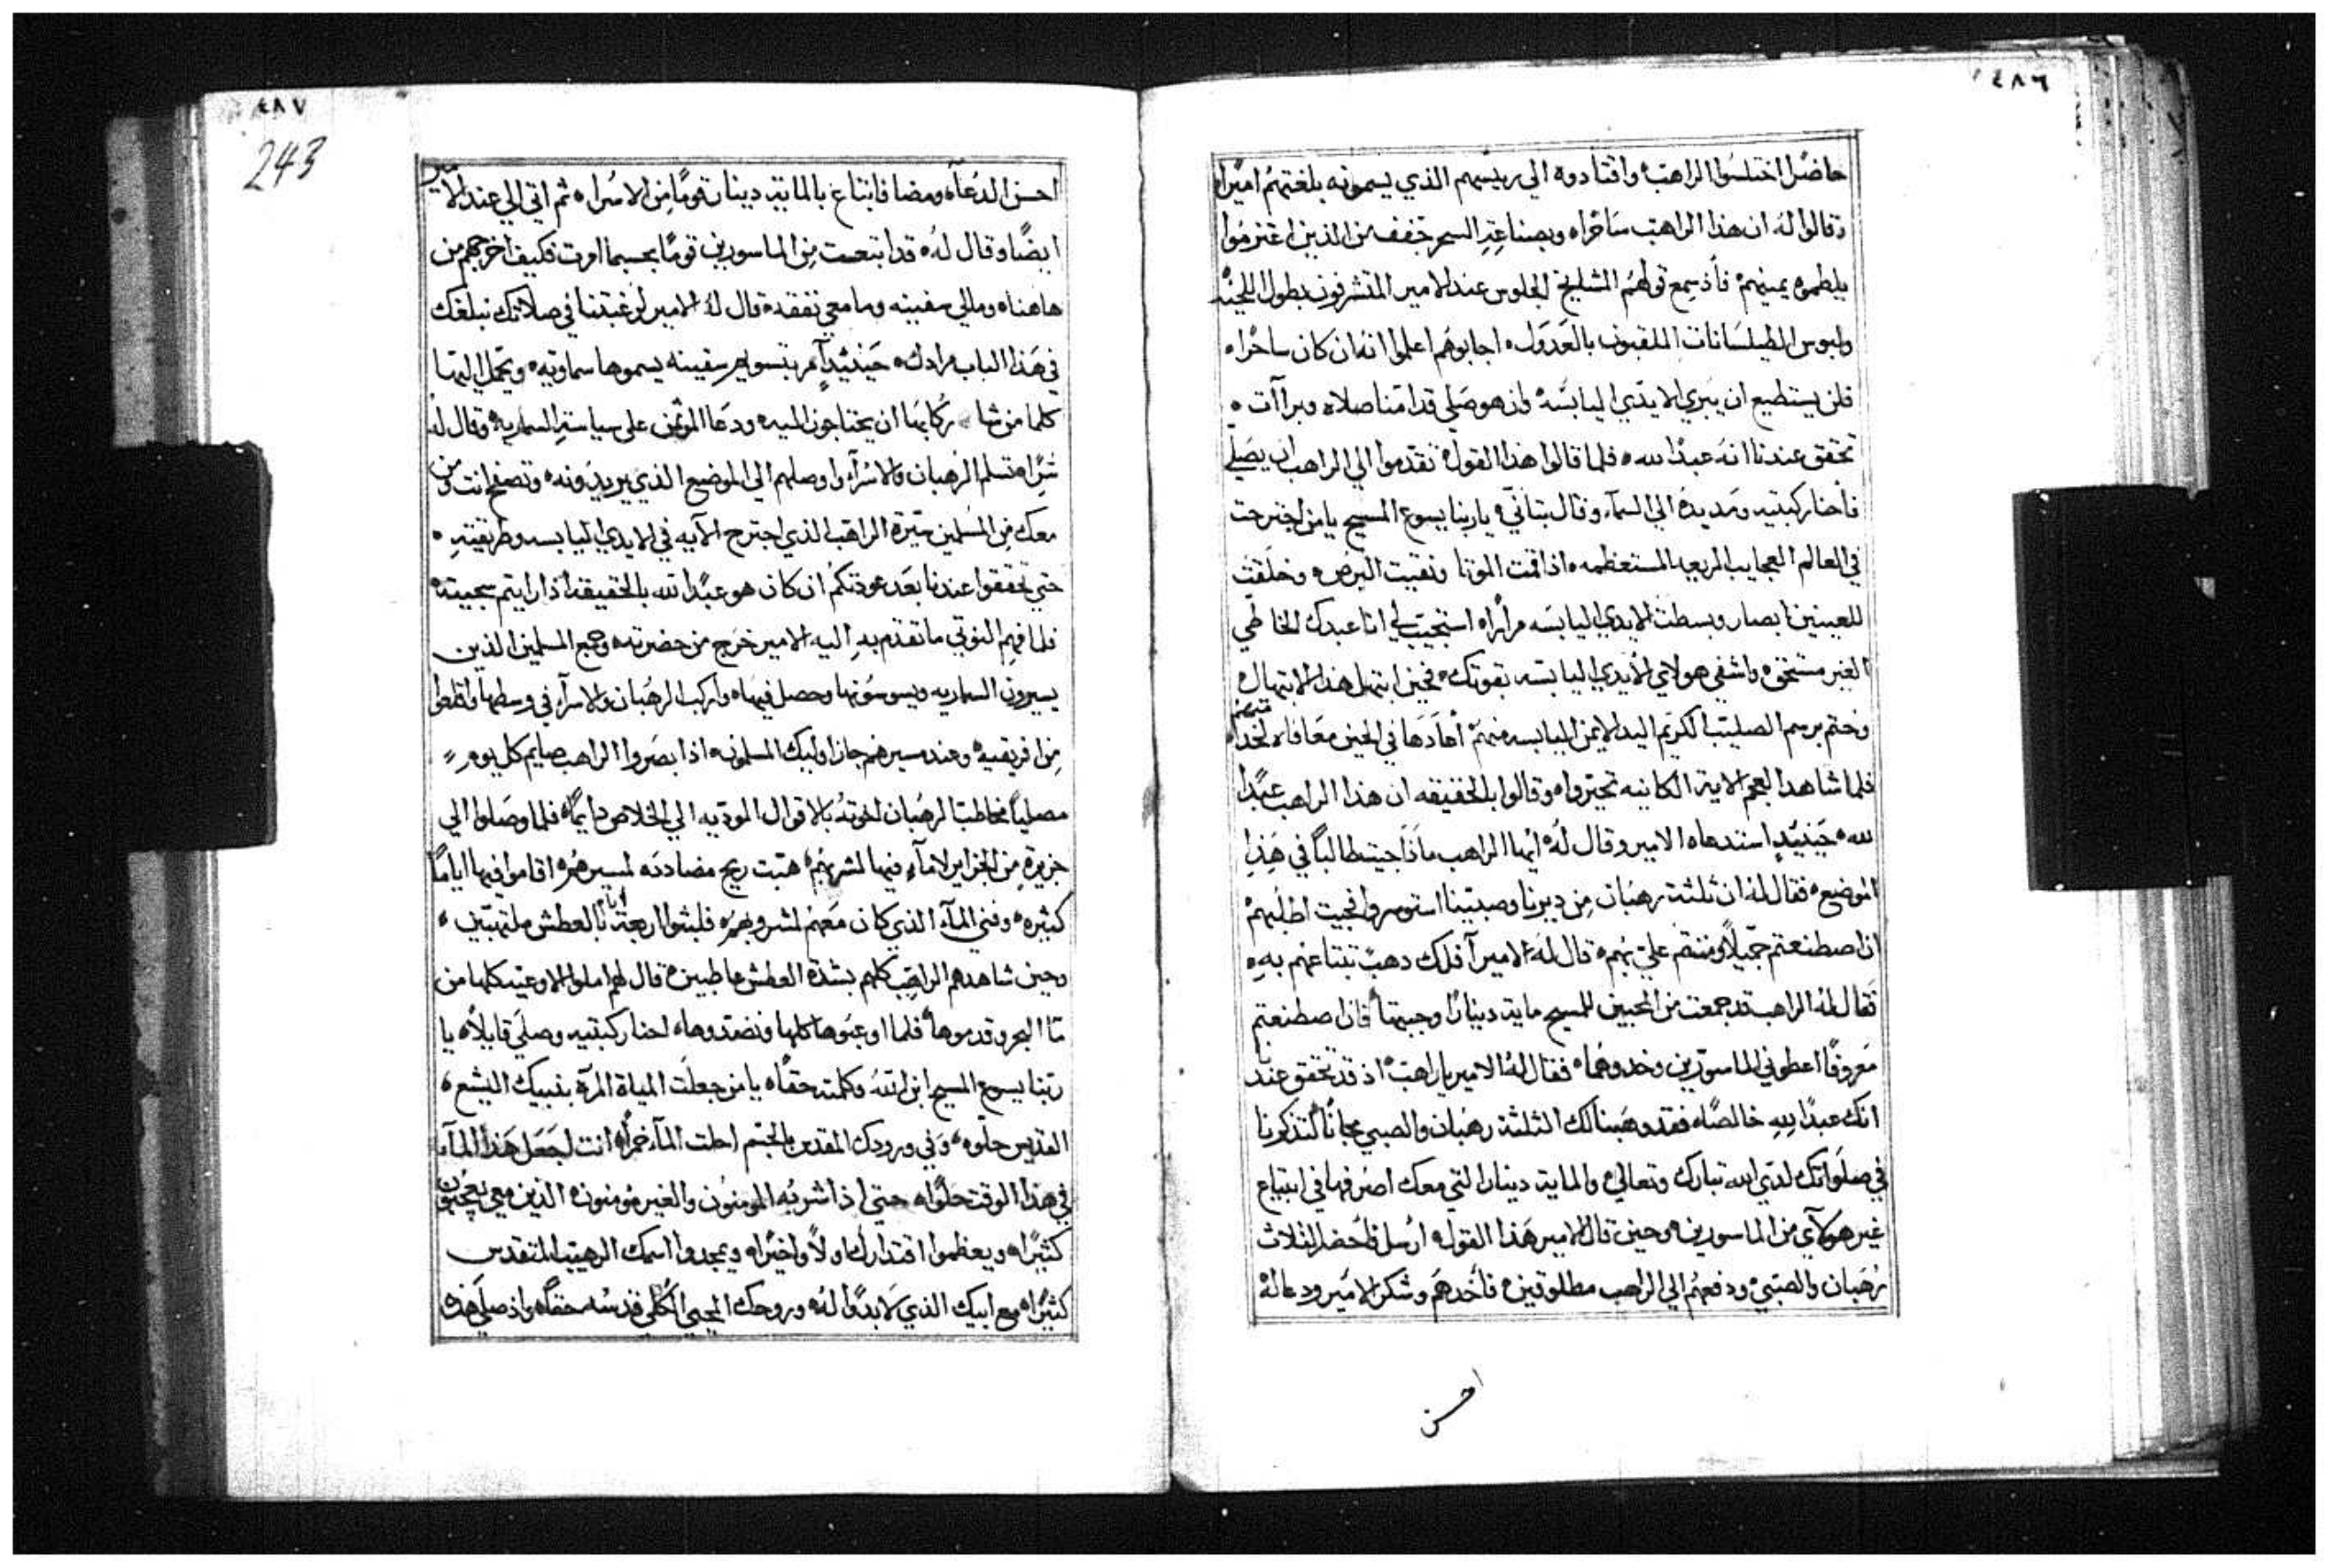 ٤٨٦
حاضرًا اختلسوا الراهب، واقتادوه الي رييسهم الذي يسمونه بلغتهم اميرًا،
وقالوا له ان هذا الراهب ساحرًا، وبصناعة السحر خفف من الذين اغترموا
بلطموه يمينهم، فاذ سمع قولهم المشايخ الجلوس عند الامير المتشرفون بطول اللحيه
ولبوس الطيلسانات الملقبون بالعدول، اجابوهم اعلموا انه ان كان ساحرًا،
فلن يستطيع ان يبري الايدي اليابسه، واذ هو صلي قدامنا صلاه وبرأت،
تحقق عندنا انه عبدًا لله، فلما قالوا هذا القول، تقدموا الي الراهب ان يصلي
فاحنا ركبتيه ومد يديه الي السماء، وقال بتاني، يا ربنا يسوع المسيح يا من اجترحت
في العالم العجايب المريعه المستعظمه، اذ اقمت الموتا ونقيت البرص، وخلقت
للعينين ابصار وبسطت الايدي اليابسه مرارًا، استجيب لي انا عبدك الخاطي
الغير مستحق، واشفي هولاي الايدي اليابسه بقوتك، فحين ابتهل هذا الابتهال
وختم برسم الصليب الكريم اليد اليمن اليابسه منهم اعادها في الحين معافاه
فلما شاهدا العجم الاية الكاينه تحيروا، وقالوا بالحقيقه ان هذا الراهب عبدًا
لله، حينيذٍ استدعاه الامير وقال له، ايها الراهب ماذا جيت طالبًا في هذا
الموضع، فقال له ان ثلثة رهبان من ديرنا وصبيينا استوسروا فجيت اطلبهم
اذ اصطنعتم جميلًا ومننتم علي بهم، قال له الامير أفلك دهب تبتاعهم به،
فقال له الراهب قد جمعت من المحبين للمسيح ماية دينارًا وجيتها، فان اصطنعتم
معروفًا اعطوني الماسورين وخدوها، فقال له الامير يا راهب، اذ قد تحقق عندنا
انك عبدًا لله خالصًا، فقد وهبنا لك الثلثة رهبان والصبي مجانًا، لتذكرنا
في صلواتك لدي الله تبارك وتعالي، والماية دينار التي معك اصرفها في ابتياع
غير هولآي من الماسورين، وحين قال الامير هذا القول، ارسل فاحضر الثلاث
رهبان والصبي، ودفعهم الي الراهب مطلوقين، فاخدهم وشكر الامير ودعا له
احسن
٤٨٧
243
احسن الدعاء، ومضا فابتاع بالماية دينار قومًا من الاسرا، ثم اتي الي عند الامير
ايضًا وقال له، قد ابتعت من الماسورين قومًا بحسبما امرت فكيف اخرجهم من
هاهنا، وما لي سفينه وما معي نفقه، قال له الامير لرغبتنا في صلاتك نبلغك
في هذا الباب مرادك، حينيذٍ أمر بتسوير سفينه يسموها سماويه، وتحمل اليها
كلما من شا ركابها ان يحتاجون اليه، ودعا الموتمن علي سياسة السماريه، وقال له
سرًا، تسلم الرهبان والاسرآء واوصلهم الي الموضع الذي يريدونه، وتصفح انت ومن
معك من المسلمين سيرة الراهب الذي اجترح الآيه في الايدي اليابسه وطريقته،
حتي تحققوا عندنا بعد عودتكم ان كان هو عبدًا لله بالحقيقة، اذا رايتم سجيته،
فلما فهم النوتي ما تقدم به اليه الامير خرج من حضرته، وجمع المسلمين الذين
يسيرون السماريه ويسوسونها وحصل فيها، واركب الرهبان والاسرآء في وسطها واقلعوا
من افريقيه، وعند مسيرهم جاز اوليك المسلمون، اذا بصروا الراهب صايم كل يوم
مصليًا مخاطبًا الرهبان اخوته بالاقوال الموديه الي الخلاص دايمًا، فلما وصلوا الي
جزيرة من الجزاير لا مآء فيها لشربهم، هبت ريح مضادده لمسيرهم، اقاموا فيها ايامًا
كثيره، وفني المآء الذي كان معهم لشروبهم، فلبثوا اربعة ايام بالعطش ملتهبين،
وحين شاهدهم الراهب كلهم بشدة العطش عاطبين، قال لهم املوا الاوعيه كلها من
مآ البحر وقدموها، فلما اوعبوها كلها ونضدوها، احنا ركبتيه وصلي قايلًا، يا
ربنا يسوع المسيح ابن الله وكلمته حقًا، يا من جعلت المياة المرة بنبيك اليشع،
القديس حلوه، وفي ورودك المقدس بالجسم احلت المآء خمرًا، انت اجعل هذا المآء
في هذا الوقت حلوًا، حتي اذا شربه المومنون والغير مومنون، الذين معي يعجبون
كثيرًا، ويعظموا اقتدارك اولًا واخيرًا، ويمجدوا اسمك الرهيب المتقدس
كثيرًا، مع ابيك الذي لا بدو له، وروحك المحيي الكلي قدسه حقًا، واذ صلي هذه